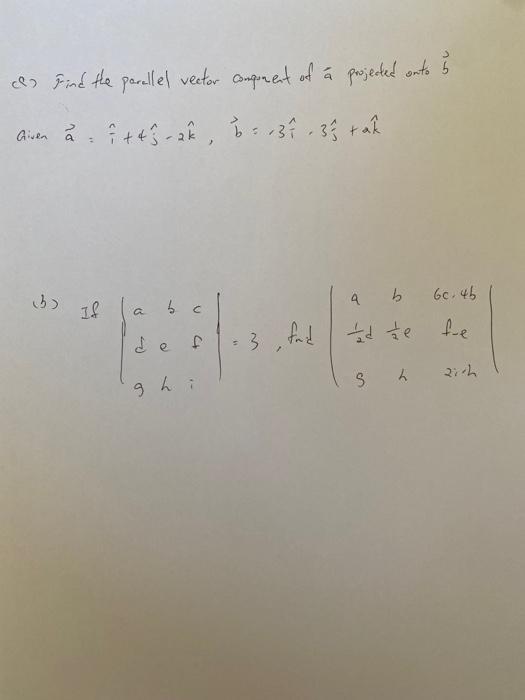 (a) Find the parallel vector component of a⃗ projected onto b⃗
Given a⃗ = î + 4ĵ - 2k̂ , b⃗ = -3î - 3ĵ + ak̂
(b) If | a b c | = 3 , find | a b 6c-4b |
| d e f | | ½d ½e f-e |
| g h i | | g h 2i-h |